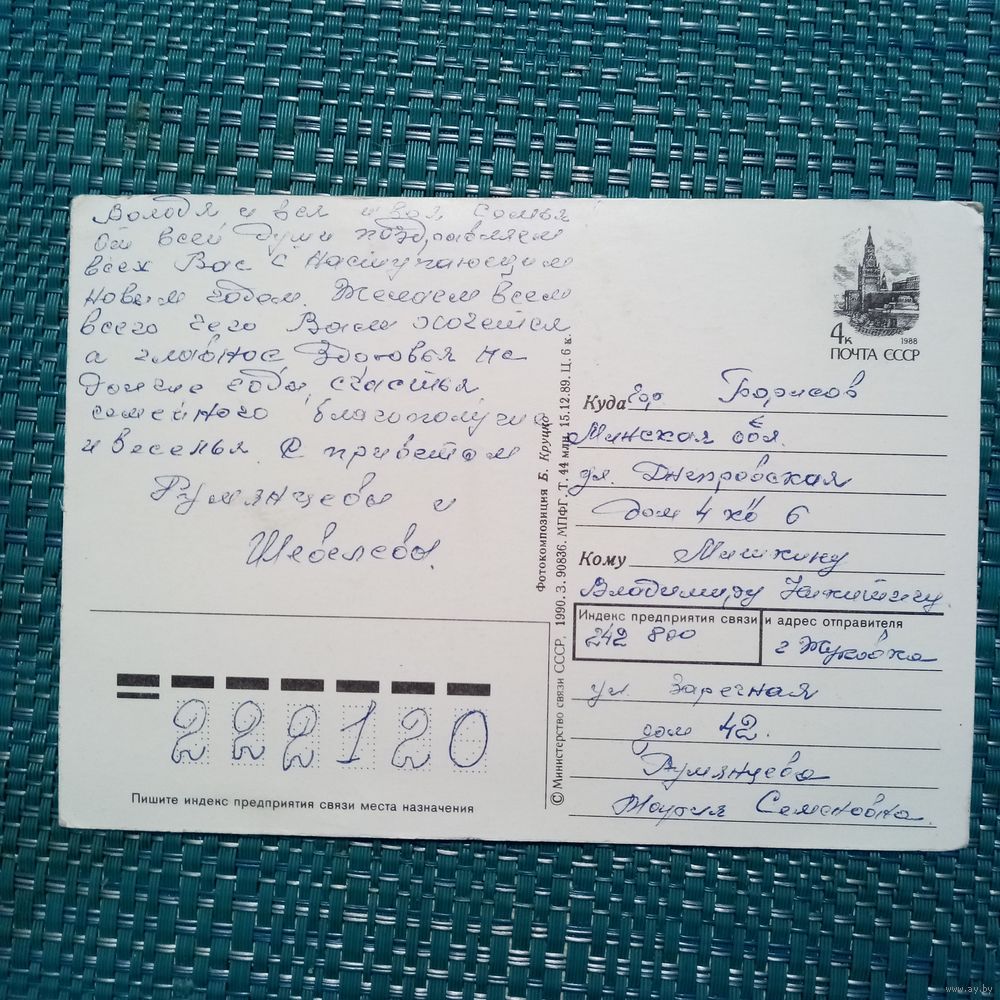 Володя, и вся твоя семья!
От всей души поздравляем
всех Вас с Наступающим
Новым годом. Желаем всем
всего чего Вам хочется
а главное здоровья на
долгие годы, счастья
семейного благополучия
и веселья. С приветом
Румянцевы и
Шевелевы.
2 2 2 1 2 0
Пишите индекс предприятия связи места назначения
Фотокомпозиция Б. Круцко
© Министерство связи СССР, 1990. З. 90836. МПФГ. Т. 44 млн. 15.12.89. Ц. 6 к.
4к
1988
ПОЧТА СССР
Куда Борисов
Минская обл.
ул. Днепровская
дом 4 кв 6
Кому Мишкину
Владимиру Никитичу
Индекс предприятия связи и адрес отправителя
242 800
г Жуковка
ул Заречная
дом 42.
Румянцева
Мария Семеновна.
www.ay.by